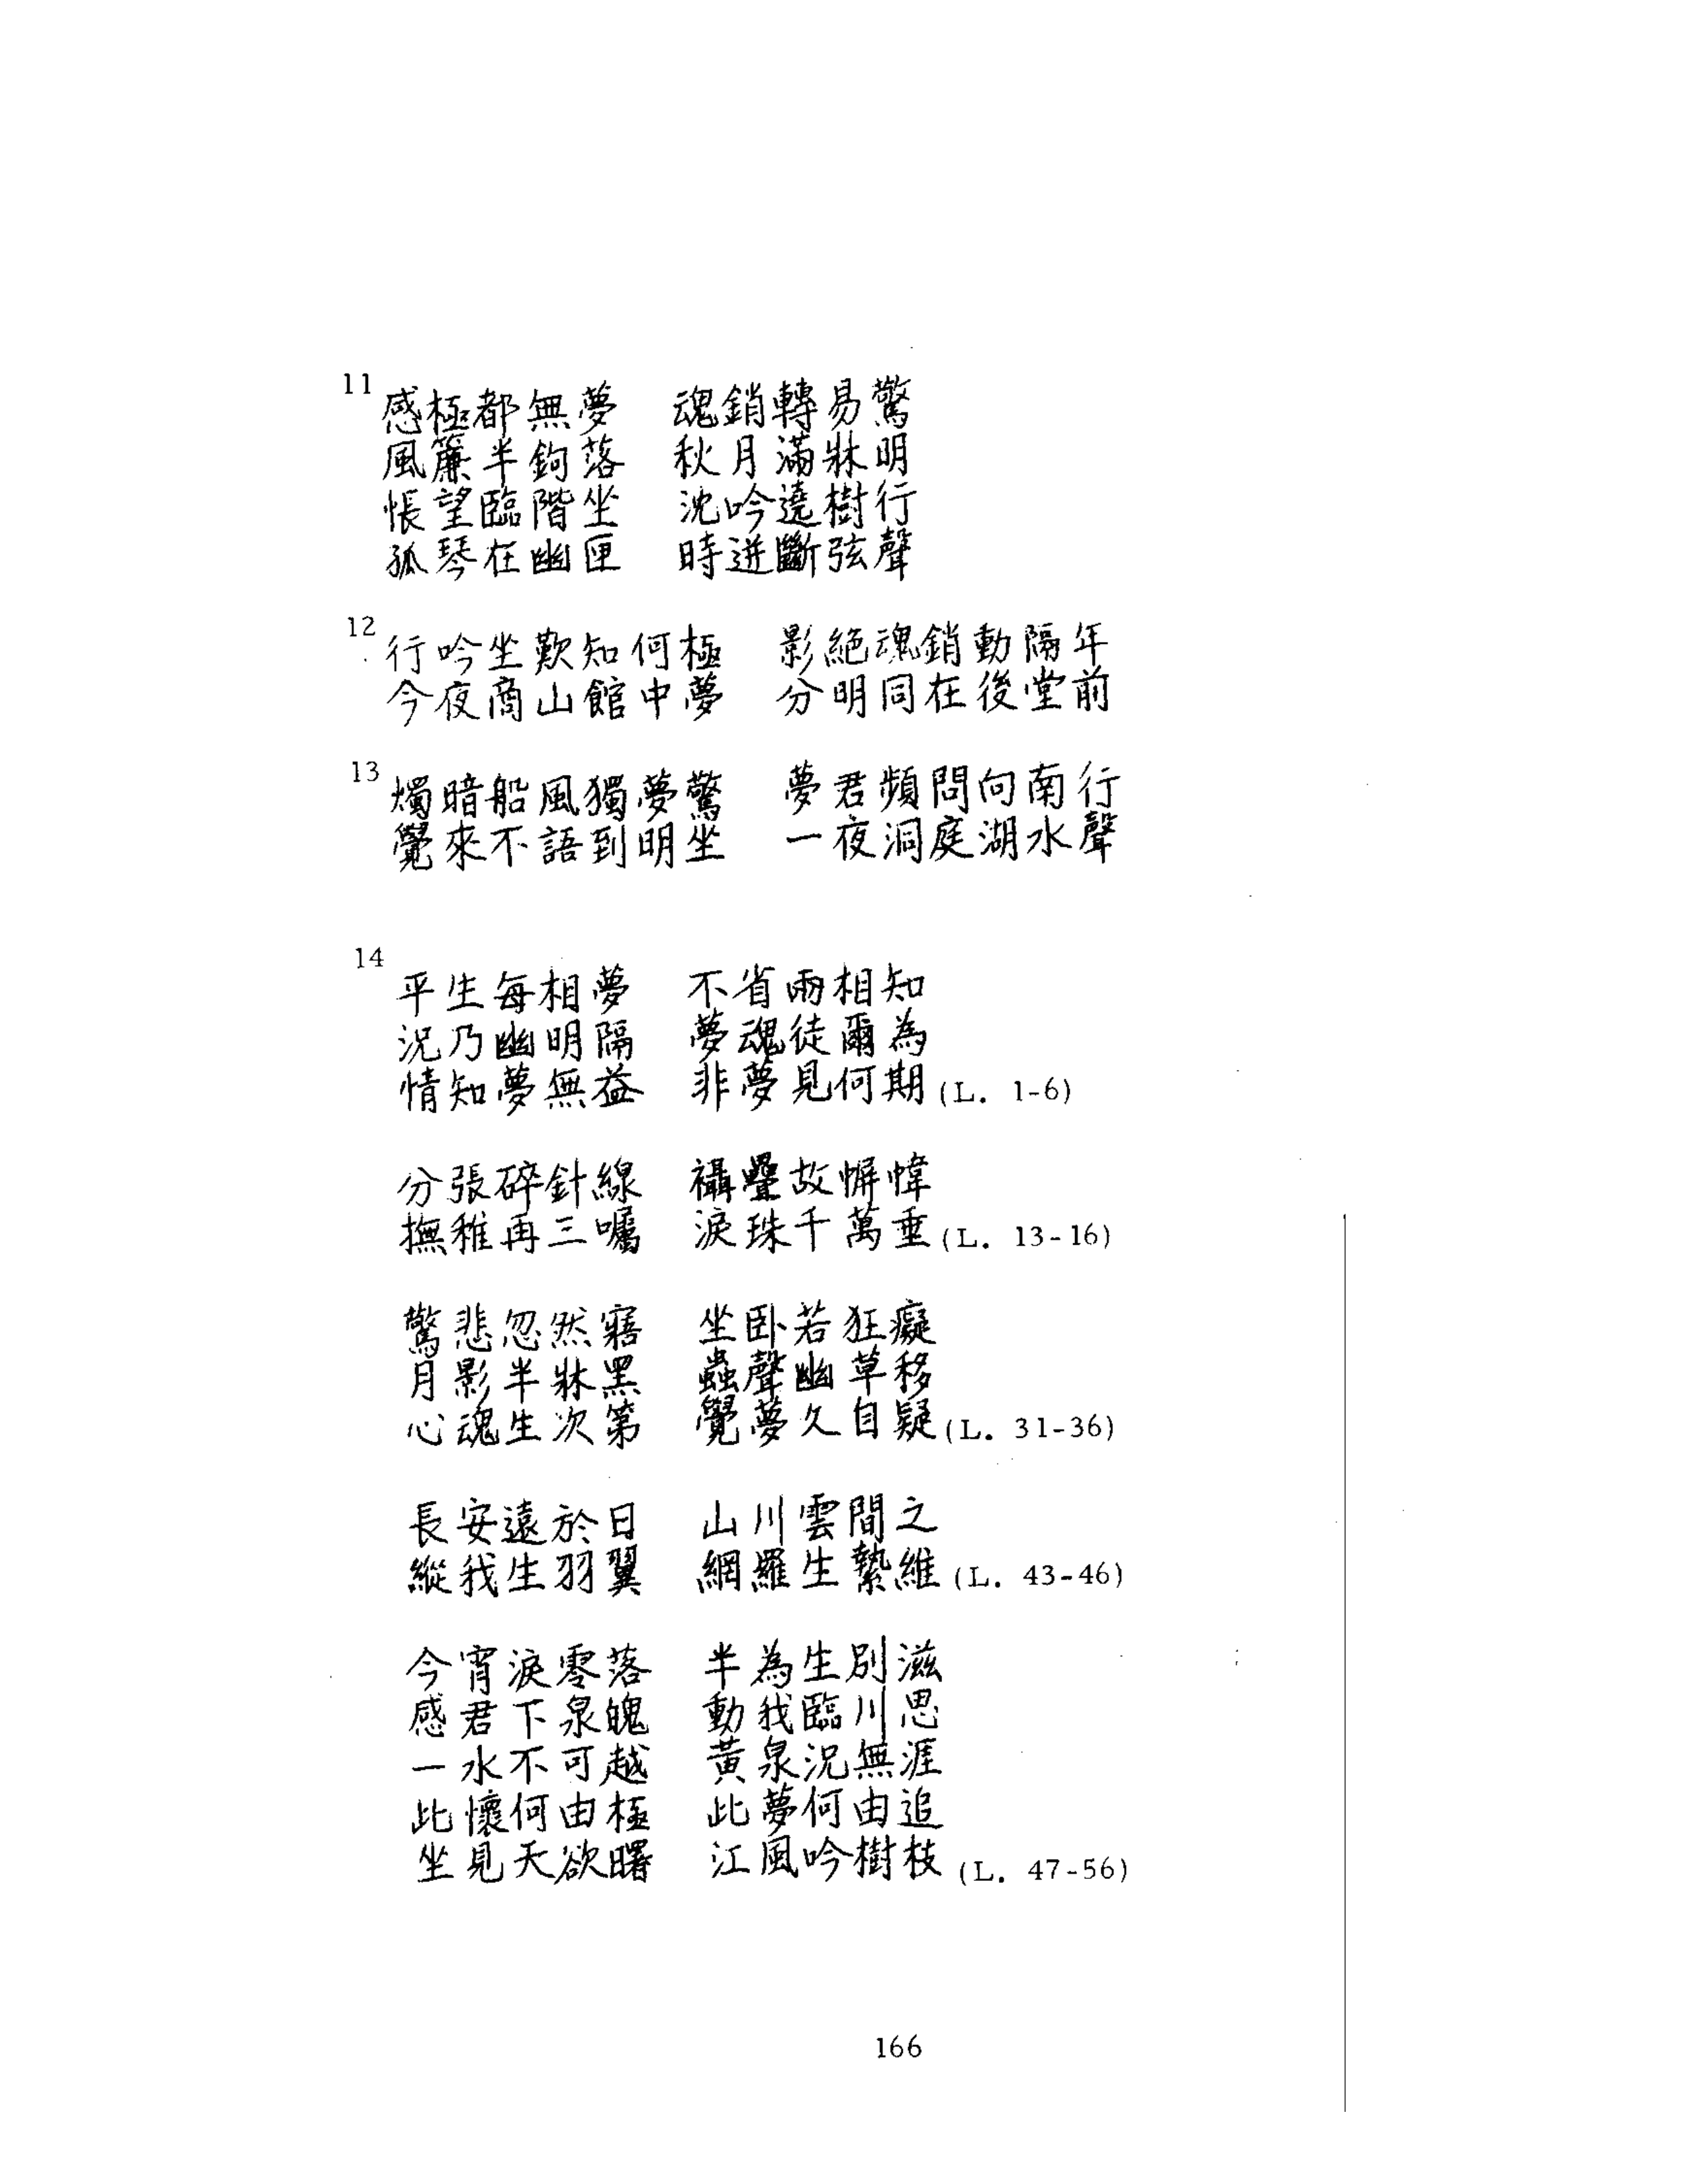 11
感極都無夢 魂銷轉易驚
風簾半鉤落 秋月滿牀明
悵望臨階坐 沈吟遶樹行
孤琴在幽匣 時迸斷弦聲
12
行吟坐歎知何極 影絕魂銷動隔年
今夜商山館中夢 分明同在後堂前
13
燭暗船風獨夢驚 夢君頻問向南行
覺來不語到明坐 一夜洞庭湖水聲
14
平生每相夢 不省兩相知
況乃幽明隔 夢魂徒爾為
情知夢無益 非夢見何期 (L. 1-6)
分張碎針線 襵疊故幈幃
撫稚再三囑 淚珠千萬垂 (L. 13-16)
驚悲忽然寤 坐臥若狂癡
月影半牀黑 蟲聲幽草移
心魂生次第 覺夢久自疑 (L. 31-36)
長安遠於日 山川雲間之
縱我生羽翼 網羅生縶維 (L. 43-46)
今宵淚零落 半為生別滋
感君下泉魄 動我臨川思
一水不可越 黃泉況無涯
此懷何由極 此夢何由追
坐見天欲曙 江風吟樹枝 (L. 47-56)
166